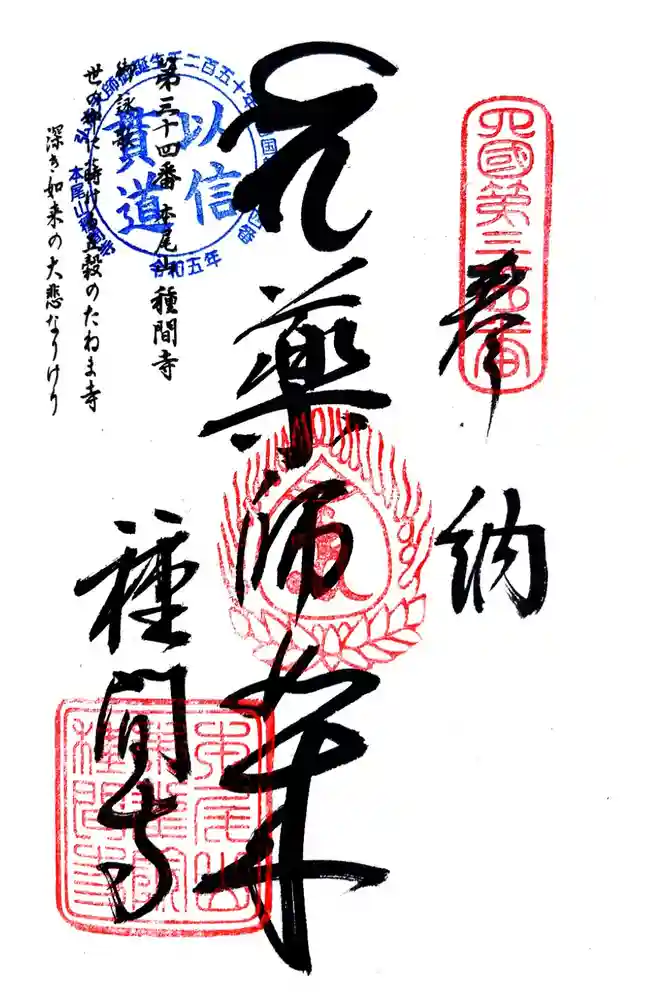 四國第三十四番
奉納
薬師如来
種間寺
本尾山
種間寺
以信
貫道
令和五年
第三十四番 本尾山 種間寺
御詠歌
世の中に蒔ける五穀のたねま寺
深き如来の大悲なりけり